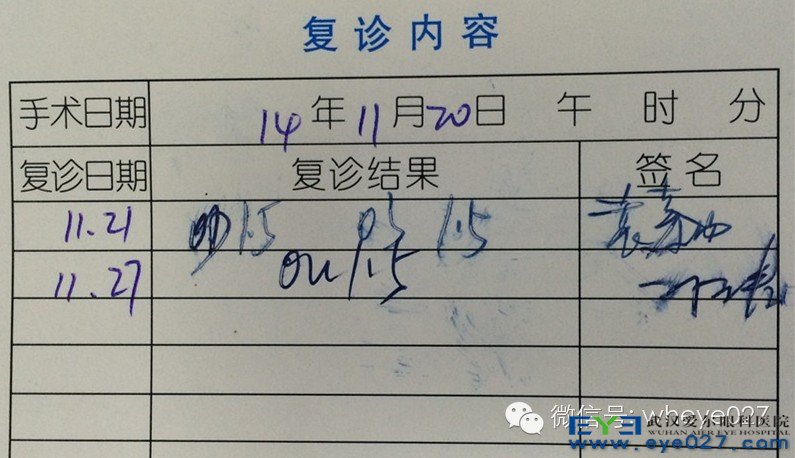 复诊内容
手术日期 14年11月20日 午 时 分
复诊日期 复诊结果 签名
11.21 OD 1.5 OS 1.5
11.27 OU 1.5
微信号: wheye027
EYE 武汉爱尔眼科医院
WUHAN AIER EYE HOSPITAL
www.eye027.com